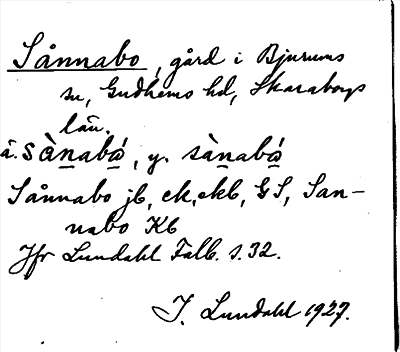 Sånnabo, gård i Bjurums
sn, Gudhems hd, Skaraborgs
län.
ä. sànabá, y. sànabá
Sånnabo jb, ek, ekb, GS, San-
nabo Kb
Jfr Lundahl Falb. s. 32.
I. Lundahl 1927.